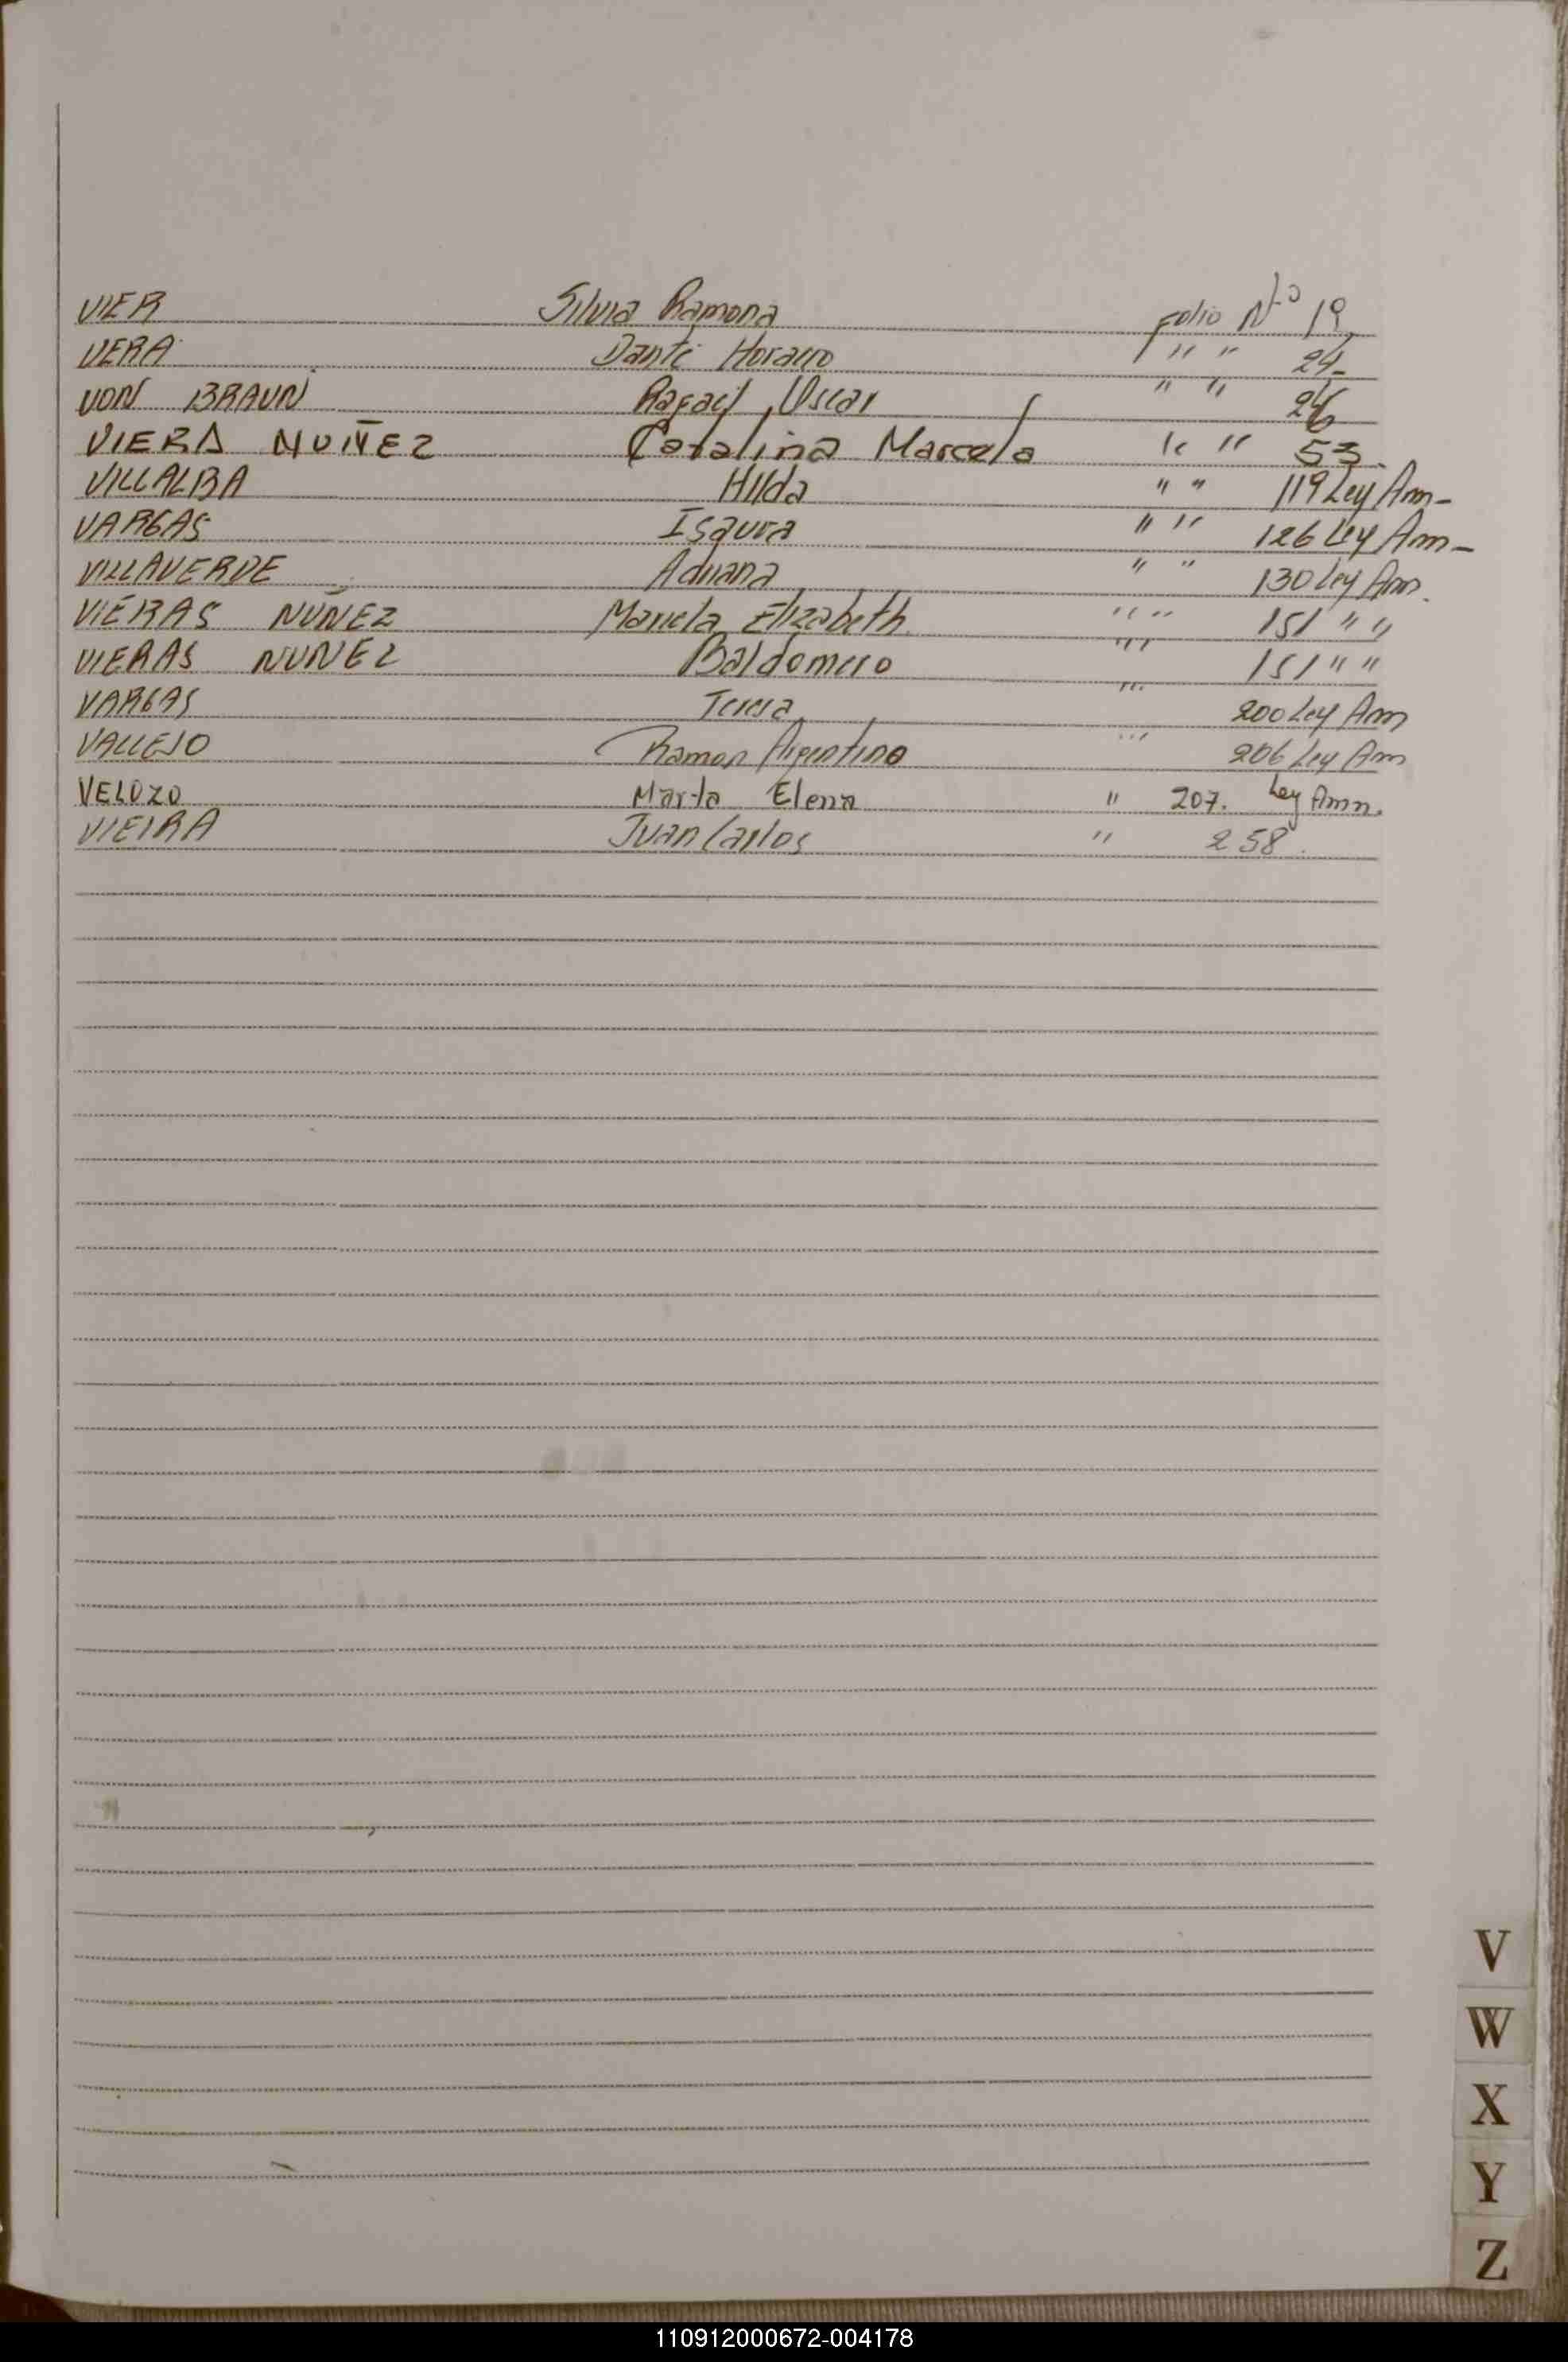 VIER Silvia Ramona Folio Nº 19
VERA Dante Horacio " " 24
VON BRAUN Rafael Oscar " " 26
VIERA NUÑEZ Catalina Marcela " " 53
VILLALBA Hilda " " 119 Ley Am-
VARGAS Isaura " " 126 Ley Am-
VILLAVERDE Adriana " " 130 Ley Am.
VIERAS NÚÑEZ Mariela Elizabeth " " 151 " "
VIERAS NUNEZ Baldomero " " 151 " "
VARGAS Teresa " " 200 Ley Am
VALLEJO Ramon Argentino " " 206 Ley Am
VELOZO Marta Elena " 207. Ley Amn.
VIEIRA Juan Carlos " 258.
V
W
X
Y
Z
110912000672-004178